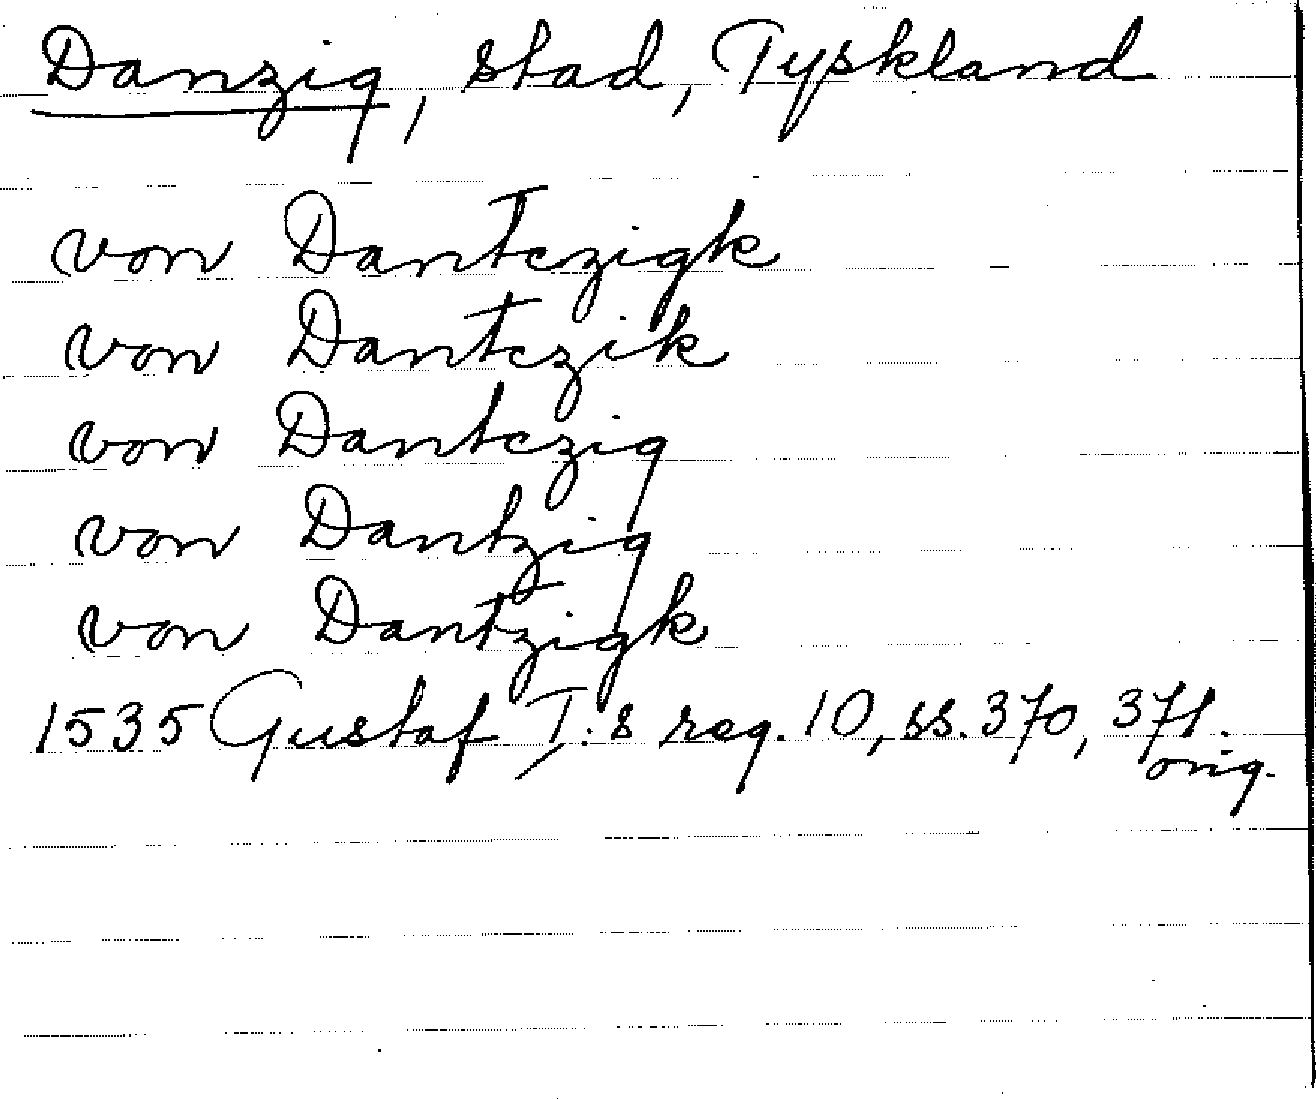 Danzig, stad, Tyskland
von Dantczigk
von Dantczik
von Dantczig
von Dantzig
von Dantzigk
1535 Gustaf I:s reg. 10, ss. 370, 371.
orig.